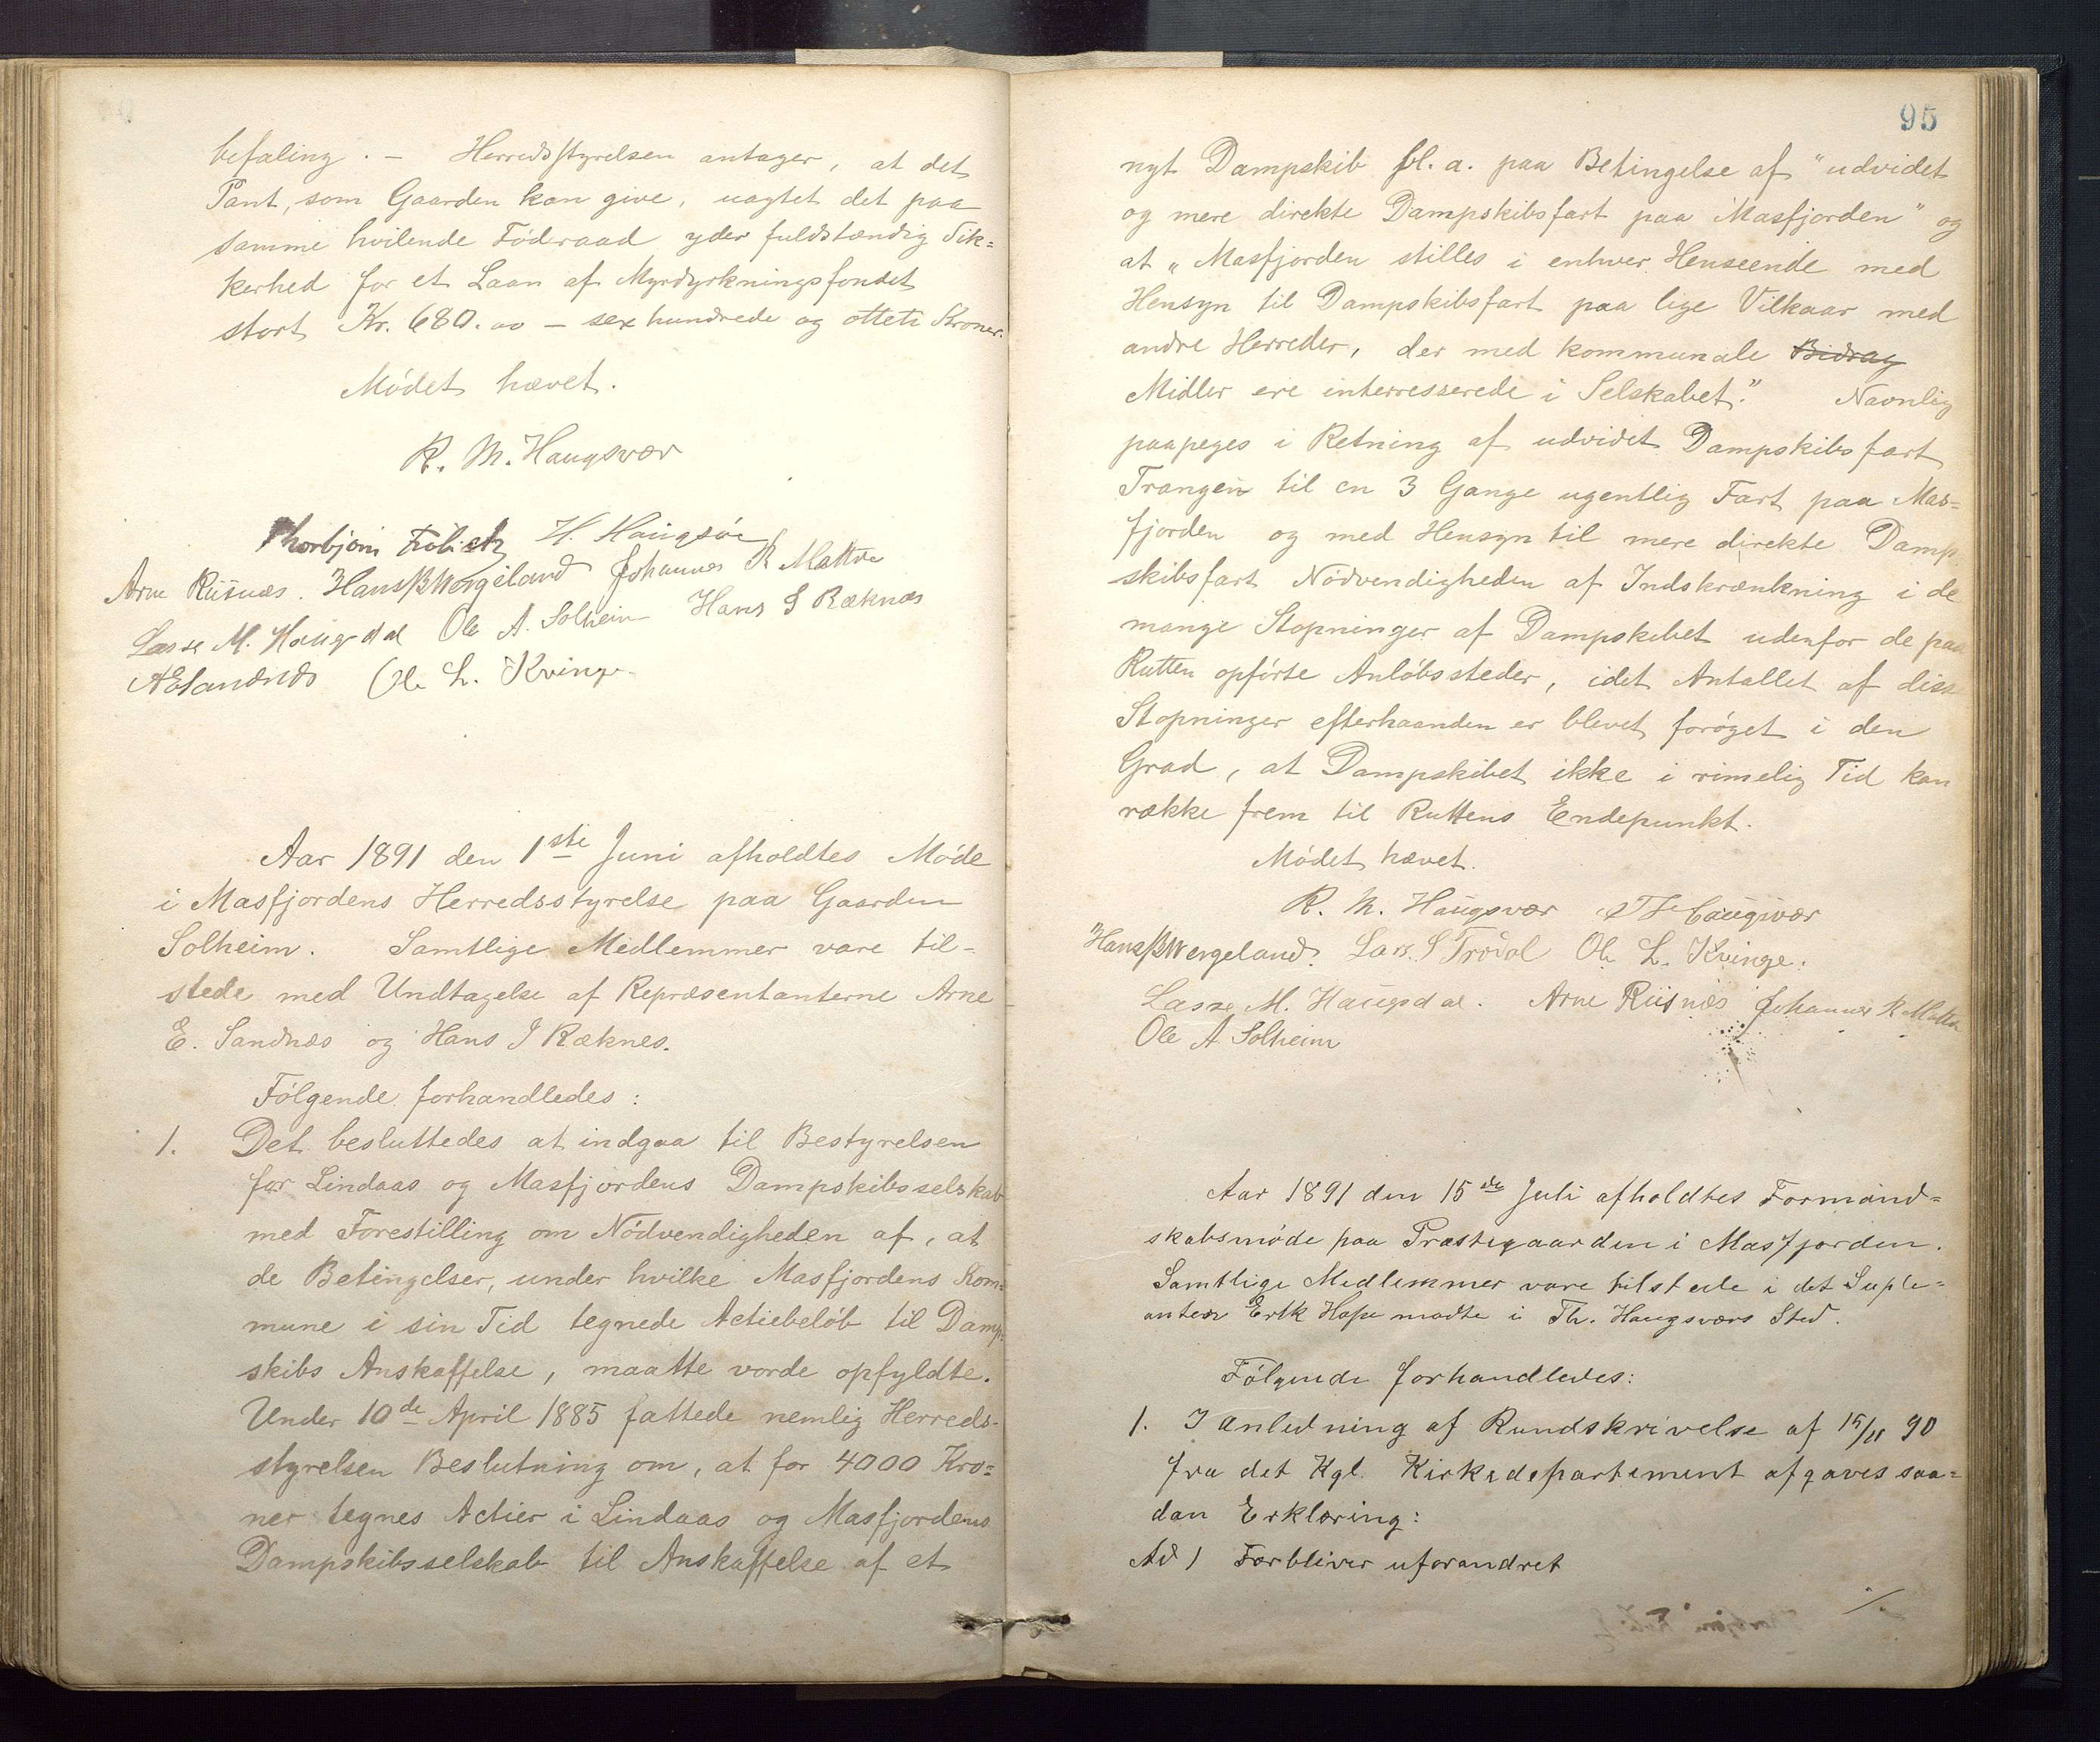 befaling. – Herredsstyrelsen antager, at det
Pant, som Gaarden kan give, uagtet det paa
samme hvilende Föderaad yder fuldstændig Sik=
kerhed for et Laan af Myrdyrkningsfondet
stort Kr. 680.00 – sex hundrede og otteti Kroner.
Mödet hævet.
R. M. Haugsvær
Thorbjørn H. Haugsvær
Arne Riisnæs. Hans B Wergeland Johannes R Mattre
Lasse M. Haugsdal Ole A. Solheim Hans I Ræknæs
A E Sandnæs Ole L. Kvinge
Aar 1891 den 1ste Juni afholdtes Möde
i Masfjordens Herredsstyrelse paa Gaarden
Solheim. Samtlige Medlemmer vare til-
stede med Undtagelse af Repræsentanterne Arne
E. Sandnæs og Hans I Ræknes.
Fölgende forhandledes:
1. Det besluttedes at indgaa til Bestyrelsen
for Lindaas og Masfjordens Dampskibsselskab
med Forestilling om Nödvendigheden af, at
de Betingelser, under hvilke Masfjordens Kom=
mune i sin Tid tegnede Actiebelöb til Damp=
skibs Anskaffelse, maatte vorde opfyldte.
Under 10de April 1885 fattede nemlig Herreds-
styrelsen Beslutning om, at for 4000 Kro=
ner tegnes Actier i Lindaas og Masfjordens
Dampskibsselskab til Anskaffelse af et
95
nyt Dampskib bl. a. paa Betingelse af "udvidet
og mere direkte Dampskibsfart paa Masfjorden" og
at „Masfjorden stilles i enhver Henseende med
Hensyn til Dampskibsfart paa lige Vilkaar med
andre Herreder, der med kommunale Bidrag
Midler ere interresserede i Selskabet." Navnlig
paapeges i Retning af udvidet Dampskibsfart
Trangen til en 3 Gange ugentlig Fart paa Mas=
fjorden og med Hensyn til mere direkte Damp
skibsfart Nödvendigheden af Indskrænkning i de
mange Stopninger af Dampskibet udenfor de paa
Rutten opförte Anlöbssteder, idet Antallet af disse
Stopninger efterhaanden er blevet foröget i den
Grad, at Dampskibet ikke i rimelig Tid kan
række frem til Ruttens Endepunkt.
Mödet hævet.
R. M. Haugsvær Th Haugsvær
Hans B Wergeland. Lars S Trodal Ole L. Kvinge.
Lasse M. Haugsdal. Arne Riisnæs Johannes R Matre
Ole A Solheim
Aar 1891 den 15de Juli afholdtes Formand=
skabsmøde paa Præstegaarden i Masfjorden.
Samtlige Medlemmer vare tilstede i det Suple=
anten Erik Hope mødte i Th. Haugsværs Sted.
Fölgende forhandledes:
1. I Anledning af Rundskrivelse af 15/11 90
fra det Kgl. Kirkedepartement afgaves saa=
dan Erklæring:
Ad 1 Forbliver uforandret
⁒